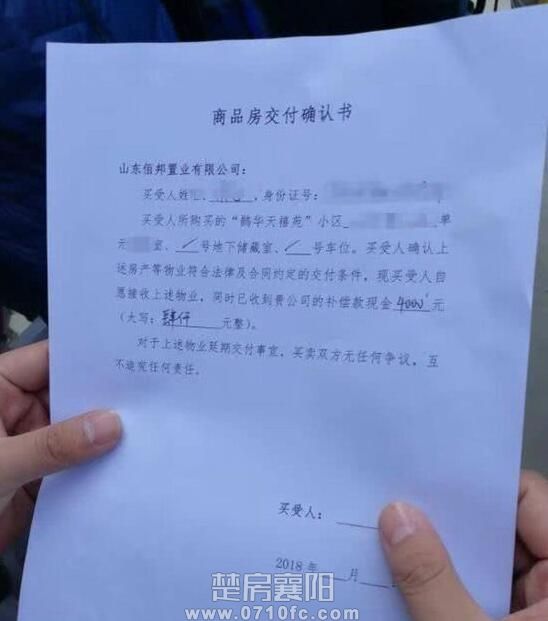 商品房交付确认书
山东佰邦置业有限公司：
买受人姓名：，身份证号：
买受人所购买的“鹤华天禧苑”小区单
元室、／号地下储藏室、／号车位。买受人确认上
述房产等物业符合法律及合同约定的交付条件，现买受人自
愿接收上述物业，同时已收到贵公司的补偿款现金4000元
（大写：肆仟元整）。
对于上述物业延期交付事宜，买卖双方无任何争议，互
不追究任何责任。
买受人：
2018年 月
楚房襄阳
www.0710fc.com